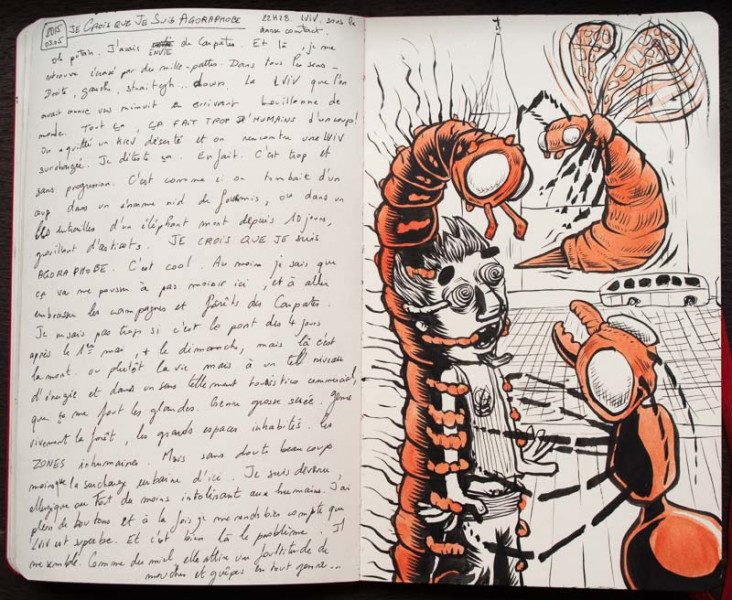 JE CROIS QUE JE SUIS AGORAPHOBE 22H28. LVIV. sous la
Oh putain. J'avais envie ENVIE de Carpates. Et là, je me
retrouve cerné par des mille-pattes. Dans tous les sens-
Droite, gauche, straight... down. La LVIV que l'on
avait connue vers minuit bouillonne de
monde. Tout ça, ÇA FAIT TROP D'HUMAINS d'un coup!
On a quitté un KIEV déserté et on rencontre une LVIV
surchargée. Je déteste ça. En fait. C'est trop et
sans progression. C'est comme si on tombait d'un
coup dans un énorme nid de fourmis, ou dans un
les entrailles d'un éléphant mort depuis 10 jours,
grouillant d'asticots. JE CROIS QUE JE SUIS
AGORAPHOBE. C'est cool. Au moins je sais que
ça va me pousser à pas moisir ici, et à aller
embrasser les campagnes et forêts des Carpates.
Je ne sais pas trop si c'est le pont des 4 jours
après le 1er mai, + le dimanche, mais là c'est
la mort. ou plutôt la vie mais à un tel niveau
d'énergie et dans un sens tellement touristico commercial,
que ça me fout les glandes. Genre grosse suée. Genre
vivement la forêt, les grands espaces inhabités. les
ZONES inhumaines. Mais sans doute beaucoup
moins que la surcharge urbaine d'ici. Je suis devenu
allergique ou tout du moins intolérant aux humains. J'ai
plein de boutons et à la fois je me rends bien compte que
LVIV est superbe. Et c'est bien là le problème. Il
me semble. Comme du miel elle attire une foultitude de
mouches et guêpes en tout genre...